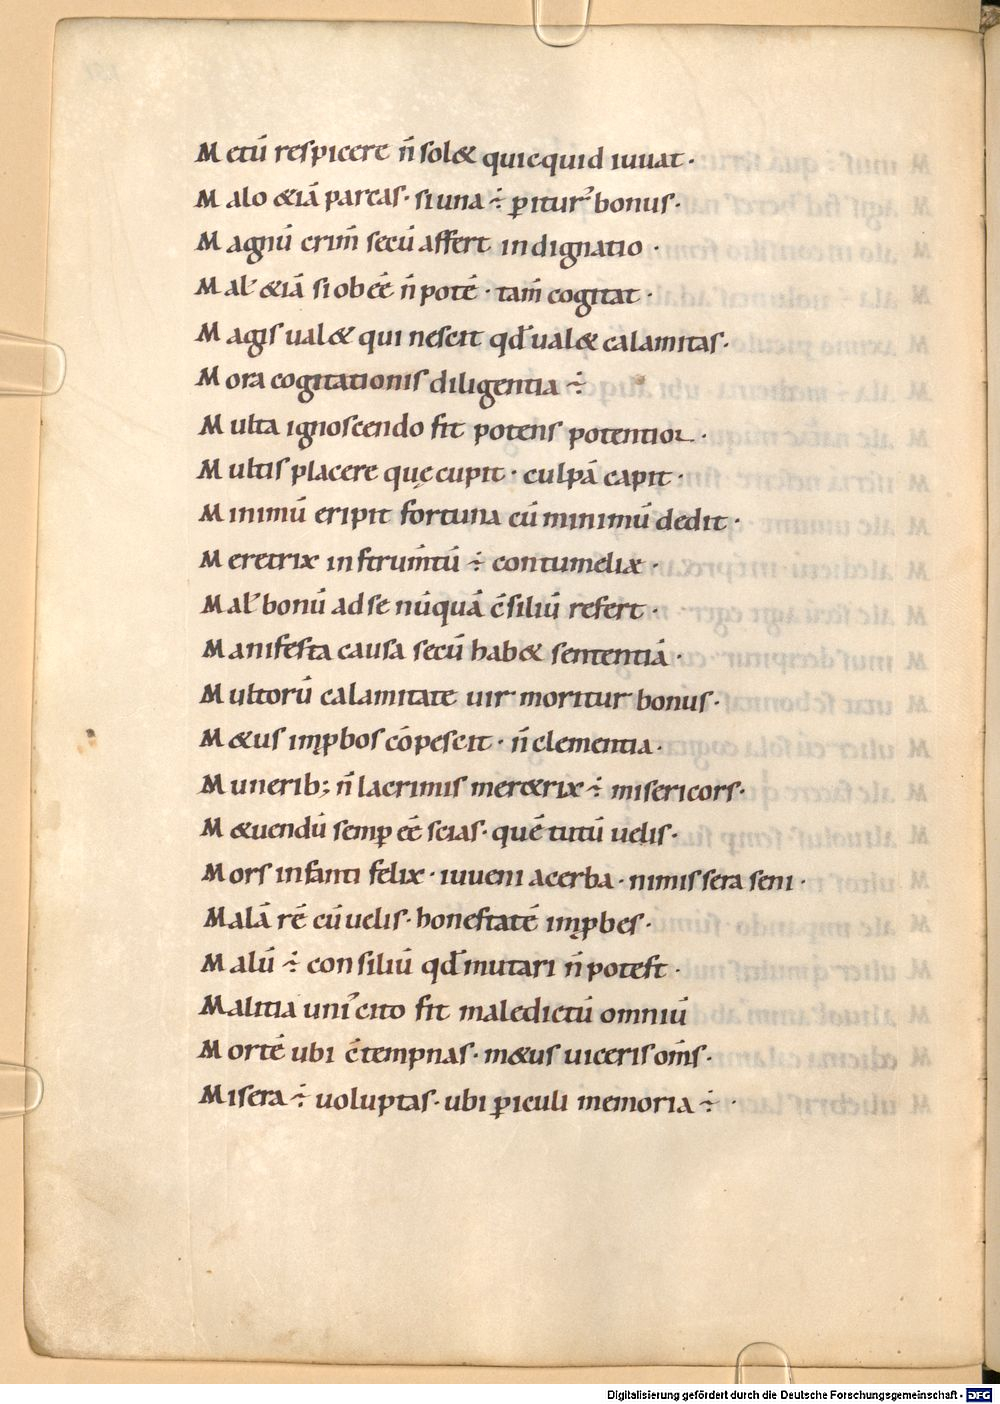 Metū respicere n̄ sol& quicquid iuuat·
Malo &iā parcas· si una ÷ ꝑitur᾿ bonus·
Magnū crim̄ secū affert indignatio·
Mal᾿ &iā si obeē n̄ potē· tam̄ cogitat·
Magis ual& qui nescit qđ ual& calamitas·
Mora cogitationis diligentia ÷
Multa ignoscendo fit potens potentior·
Multis placere quę cupit· culpā capit·
Minimū eripit fortuna cū minimū dedit·
Meretrix instrum̄tū ÷ contumeliæ·
Mal᾿ bonū ad se nūquā c̄siliū refert·
Manifesta causa secū hab& sententiā·
Multorū calamitate uir moritur bonus·
M&us imꝓbos cōpescit· n̄ clementia·
Munerib; n̄ lacrimis mer&rix ÷ misericors·
M&uendū semꝑ eē scias· quē tutū uelis·
Mors infanti felix· iuueni acerba· nimis sera seni·
Malā rē cū uelis· honestatē imꝓbes·
Malū ÷ consiliū qđ mutari n̄ potest·
Malitia uni᾿ cito fit maledictū omniū
Mortē ubi c̄tempnas· m&us uiceris om̄s·
Misera ÷ uoluptas· ubi ꝑiculi memoria ÷·
Digitalisierung gefördert durch die Deutsche Forschungsgemeinschaft - DFG